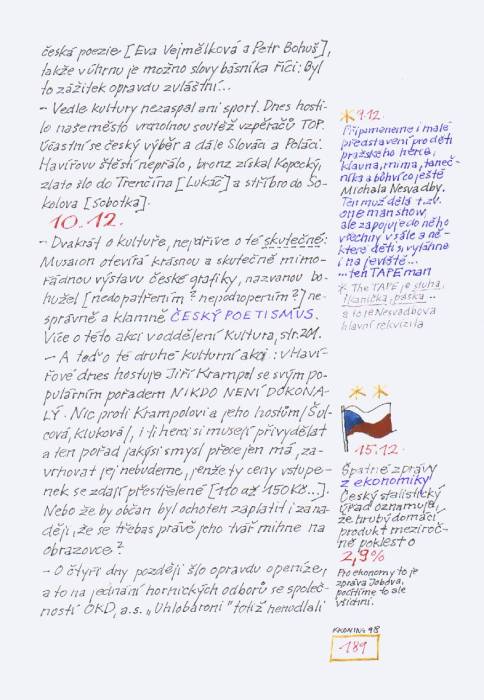 česká poezie [Eva Vejmělková a Petr Bohuš],
takže v úhrnu je možno slovy básníka říci: Byl
to zážitek opravdu zvláštní...
- Vedle kultury nezaspal ani sport. Dnes hosti-
lo naše město vrcholnou soutěž vzpěračů TOP.
Účastní se český výběr a dále Slováci a Poláci.
Havířovu štěstí nepřálo, bronz získal Kopecký,
zlato šlo do Trenčína [Lukáč] a stříbro do So-
kolova [Sobotka].
10.12.
- Dvakrát o kultuře, nejdříve o té skutečné:
Musaion otevírá krásnou a skutečně mimo-
řádnou výstavu české grafiky, nazvanou bo-
hužel [nedopatřením? nepochopením?] ne-
správně a klamně ČESKÝ POETISMUS.
Více o této akci v oddělení Kultura, str. 201.
- A teď o té druhé kulturní akci: v Haví-
řově dnes hostuje Jiří Krampol se svým po-
pulárním pořadem NIKDO NENÍ DOKONA-
LÝ. Nic proti Krampolovi a jeho hostům /Šul-
cová, Kluková/, i ti herci si musejí přivydělat
a ten pořad jakýsi smysl přece jen má, za-
vrhovat jej nebudeme, jenže ty ceny vstupe-
nek se zdají přestřelené [110 až 150 Kč...].
Nebo že by občan byl ochoten zaplatit i za na-
ději, že se třebas právě jeho tvář mihne na
obrazovce?
- O čtyři dny později šlo opravdu o peníze,
a to na jednání hornických odborů se společ-
ností OKD, a.s. „Uhlobaroni" totiž nehodlali
9.12.
Připomeneme i malé
představení pro děti
pražského herce,
klauna, mima, taneč-
níka a bůhví co ještě
Michala Nesvadby.
Ten muž dělá t.zv.
one man show,
ale zapojuje do něho
všechny v sále a ně-
které děti si vytáhne
i na jeviště...
... ten TAPE man
* The TAPE je duha,
tkanička, páska...
a to je Nesvadbova
hlavní rekvizita
15.12.
Špatné zprávy
z ekonomiky
Český statistický
úřad oznamuje,
že hrubý domácí
produkt meziroč-
ně poklesl o
2,9%
Pro ekonomy to je
zpráva Jobova,
pocítíme to ale
všichni.
98
189